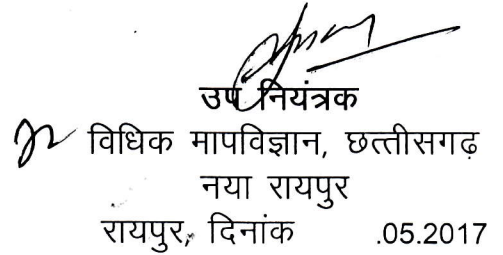 उप नियंत्रक
विधिक मापविज्ञान, छत्तीसगढ़
नया रायपुर
रायपुर, दिनांक .05.2017